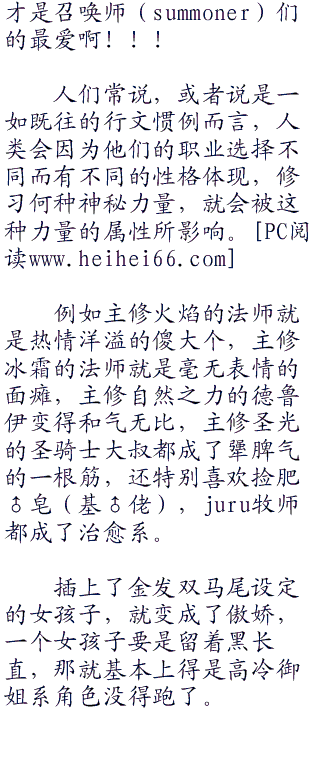 才是召唤师（summoner）们
的最爱啊！！！
人们常说，或者说是一
如既往的行文惯例而言，人
类会因为他们的职业选择不
同而有不同的性格体现，修
习何种神秘力量，就会被这
种力量的属性所影响。[PC阅
读www.heihei66.com]
例如主修火焰的法师就
是热情洋溢的傻大个，主修
冰霜的法师就是毫无表情的
面瘫，主修自然之力的德鲁
伊变得和气无比，主修圣光
的圣骑士大叔都成了犟脾气
的一根筋，还特别喜欢捡肥
♂皂（基♂佬），juru牧师
都成了治愈系。
插上了金发双马尾设定
的女孩子，就变成了傲娇，
一个女孩子要是留着黑长
直，那就基本上得是高冷御
姐系角色没得跑了。